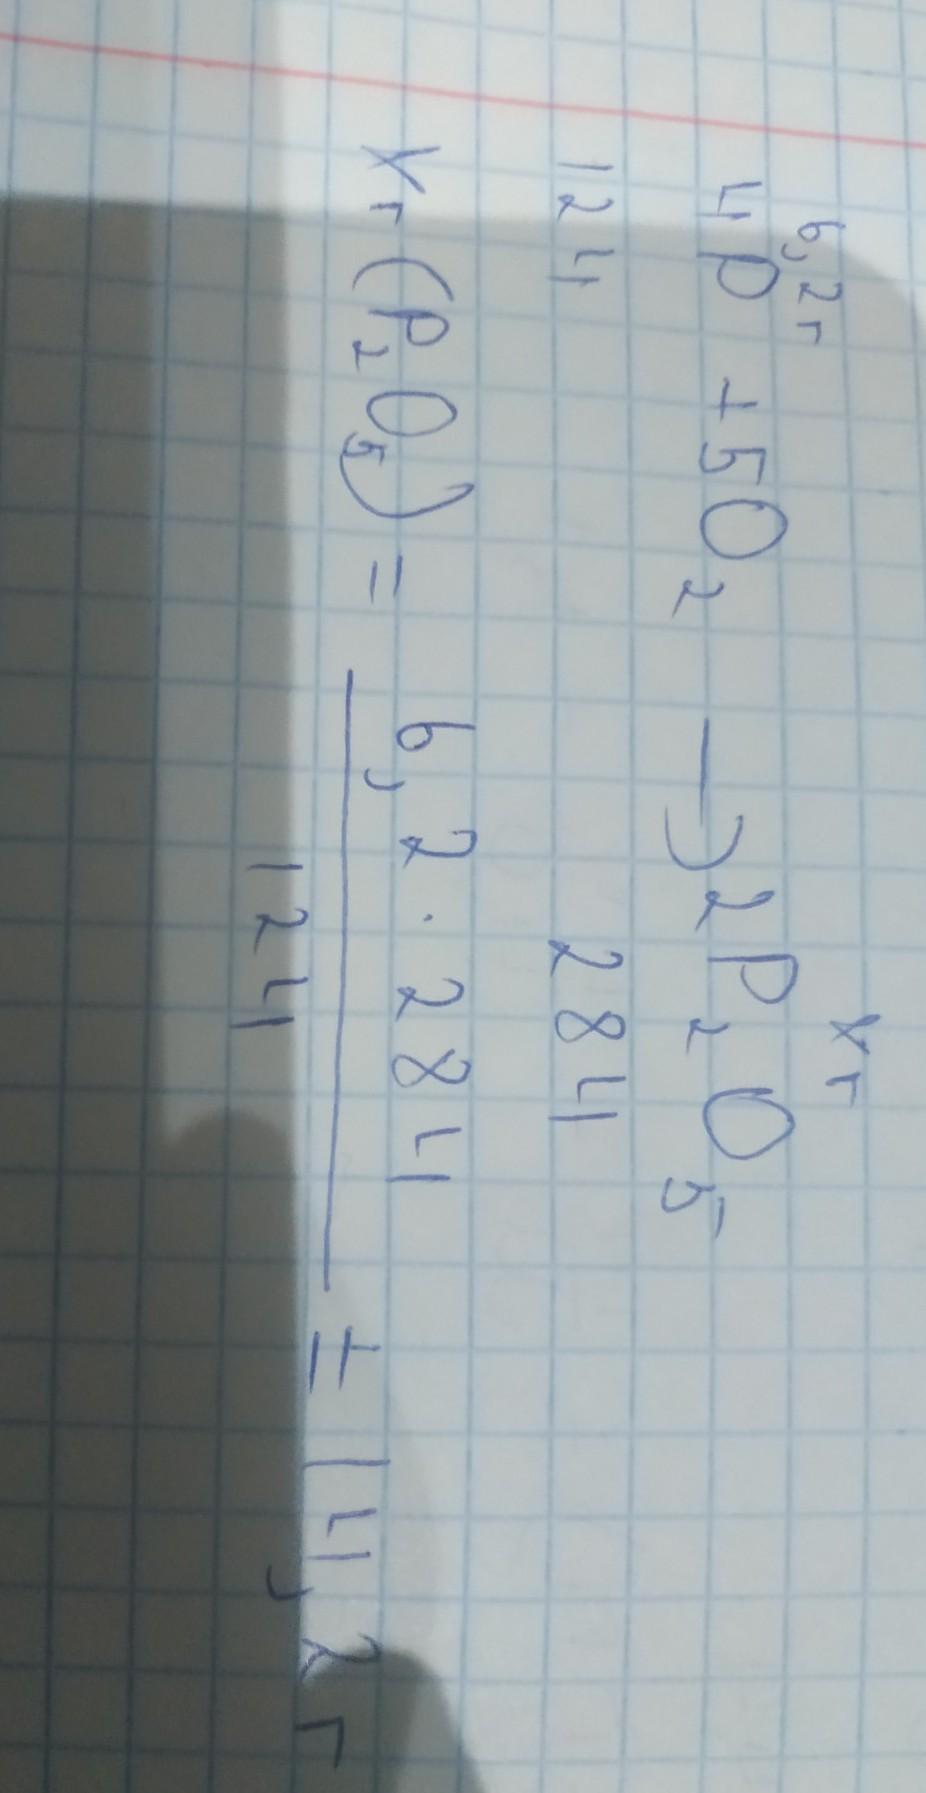 6,2г хг
4P + 5O₂ → 2P₂O₅
124 284
хг(P₂O₅) = 6,2 · 284
124
= 14,2 г